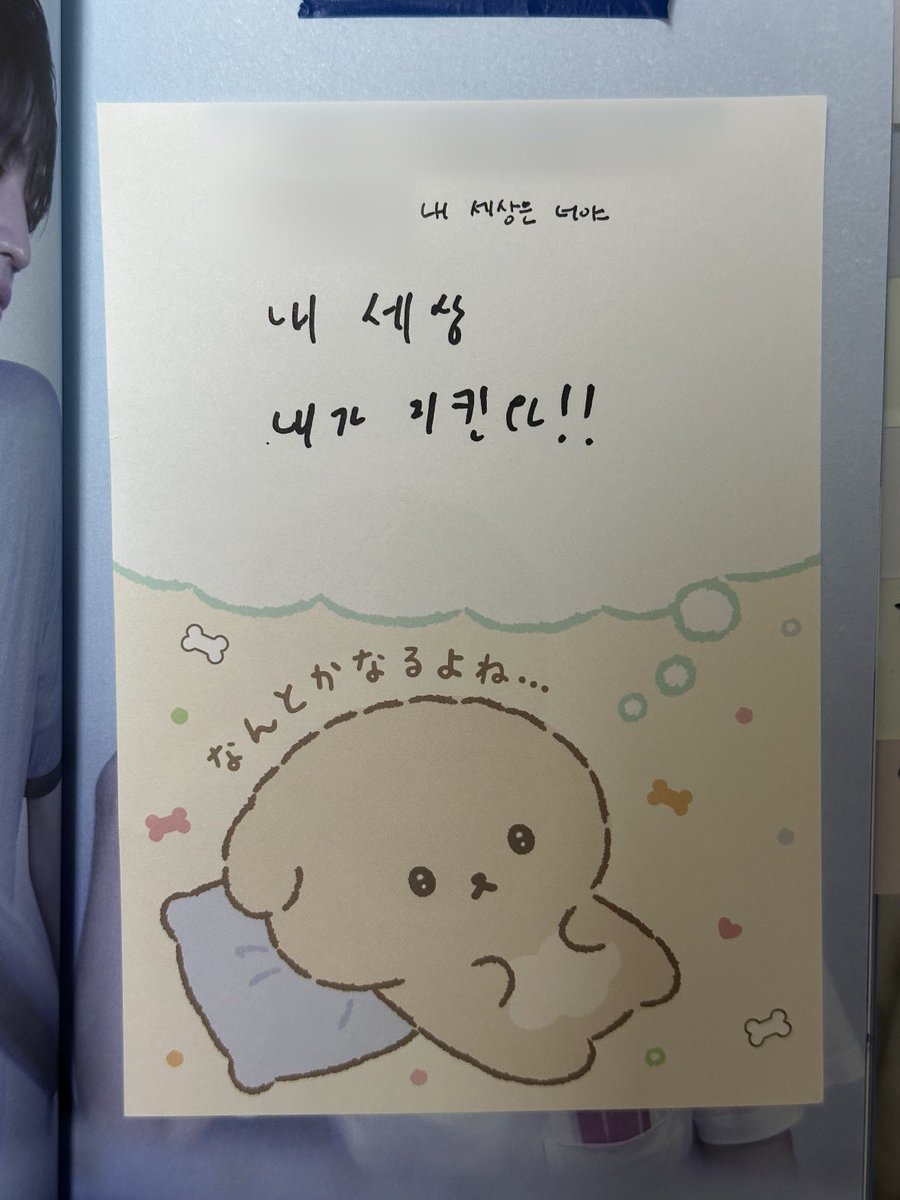 내 세상은 너야
내 세상
내가 지킨다!!
なんとかなるよね...